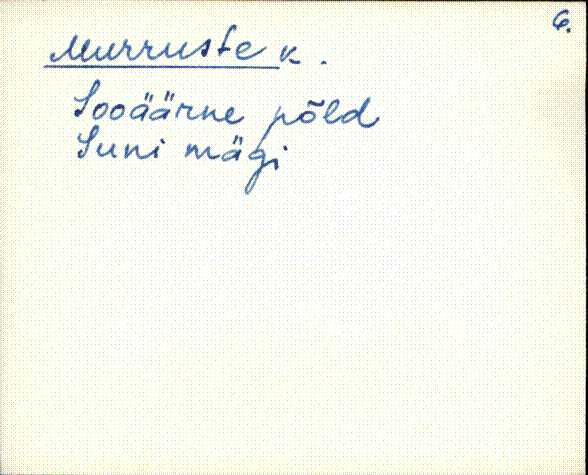 6.
Murruste k.
Sooäärne põld
Suni mägi